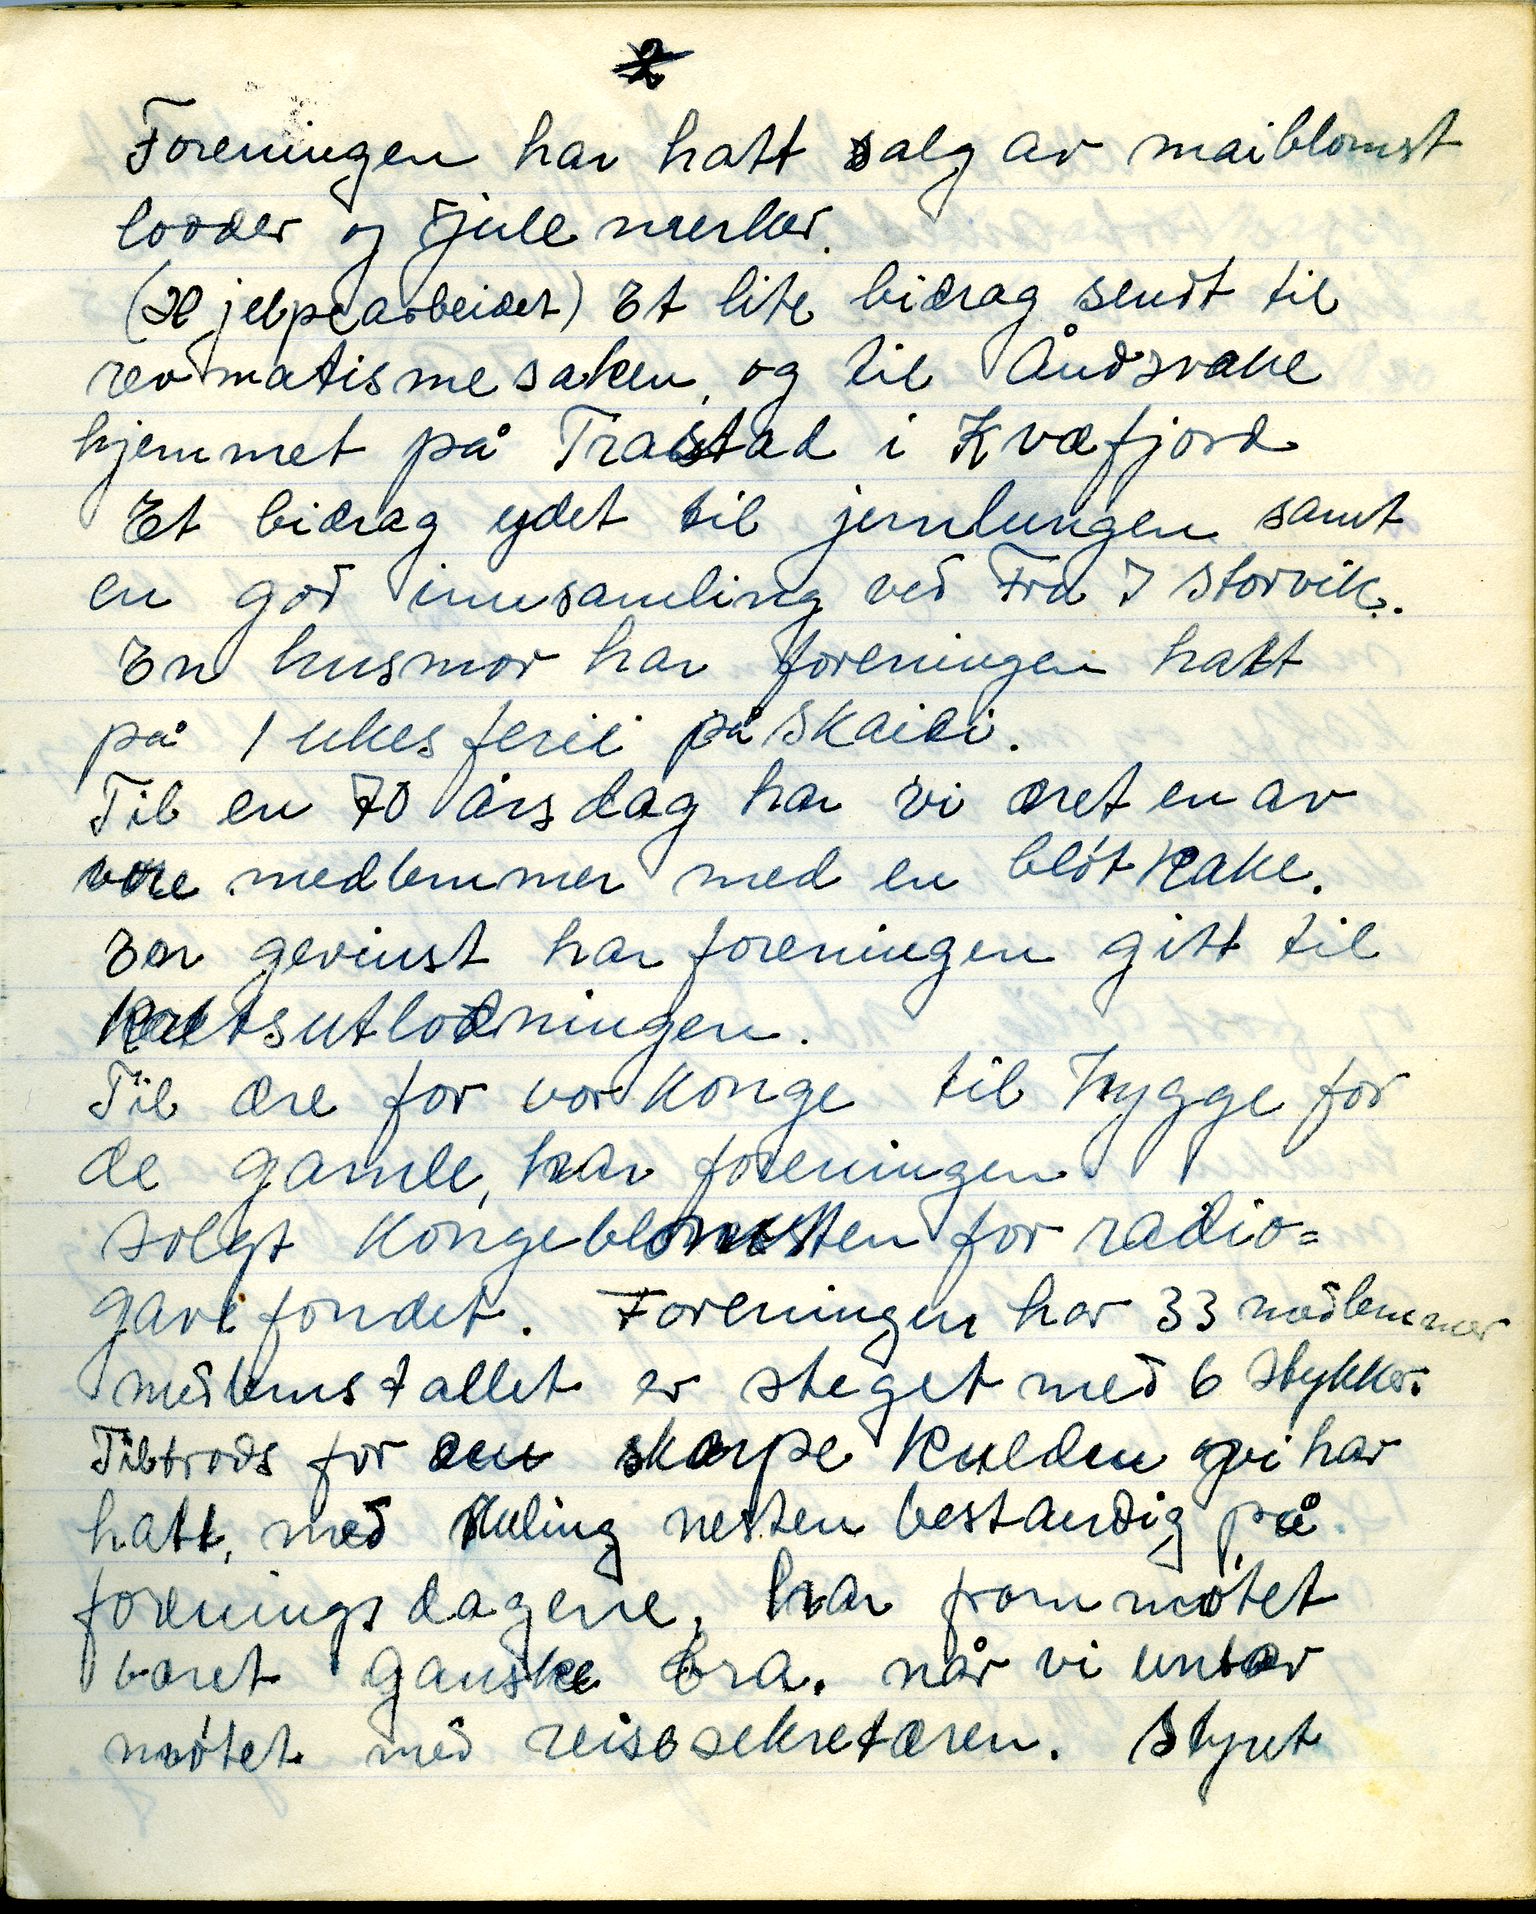 2
Foreningen har hatt salg av maiblomst
lodder og julemerker.
(Hjelpearbeidet) Et lite bidrag sendt til
revmatismesaken, og til Åndsvake
hjemmet på Trastad i Kvæfjord
Et bidrag ydet til jernlungen samt
en god innsamling ved Fru J Storvik.
En husmor har foreningen hatt
på 1 ukes ferie på Skaidi.
Til en 70 årsdag har vi æret en av
våre medlemmer med en bløtkake.
En gevinst har foreningen gitt til
kretsutlodningen.
Til ære for vor Konge til hygge for
de gamle, har foreningen
solgt Kongeblomsten for radio=
gavefondet. Foreningen har 33 medlemmer
medlemstallet er steget med 6 stykker.
Tiltrods for den skarpe kulden vi har
hatt, med kuling nesten bestandig på
foreningsdagene, har frammøtet
været ganske bra. når vi untar
møtet med reisesekretæren. Styret